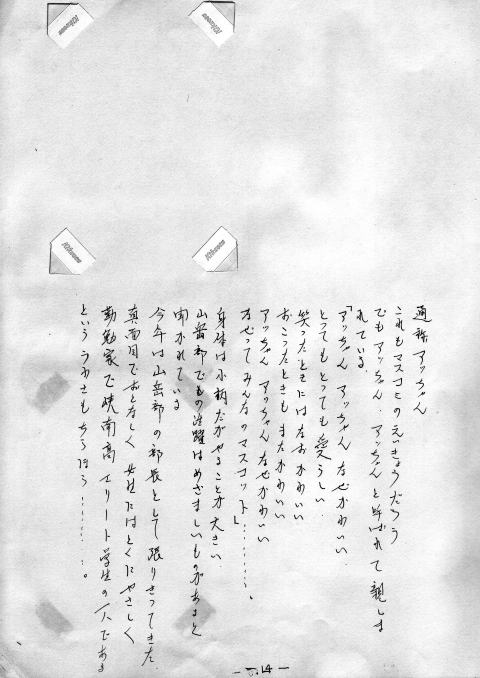 通称 アッちゃん
これもマスコミのえいきょうだろう
でもアッちゃん・アッちゃんと呼ばれて親しま
れている。
「アッちゃん アッちゃん なぜかわいい
とってもとっても愛らしい
笑ったときにはなおかわいい
おこったときもまたかわいい
アッちゃん アッちゃん なぜかわいい
なぜってみんなのマスコット」………
身体は小柄だがやることが大きい
山岳部でもの活躍はめざましいものがあると
聞かれている
今年は山岳部の部長として張りきってきた
真面目でおとなしく 女性にはとくにやさしく
勤勉家で峡南高エリート学生の一人である
といううわさもちらほら………。
Kikusui
Kikusui
Kikusui
Kikusui